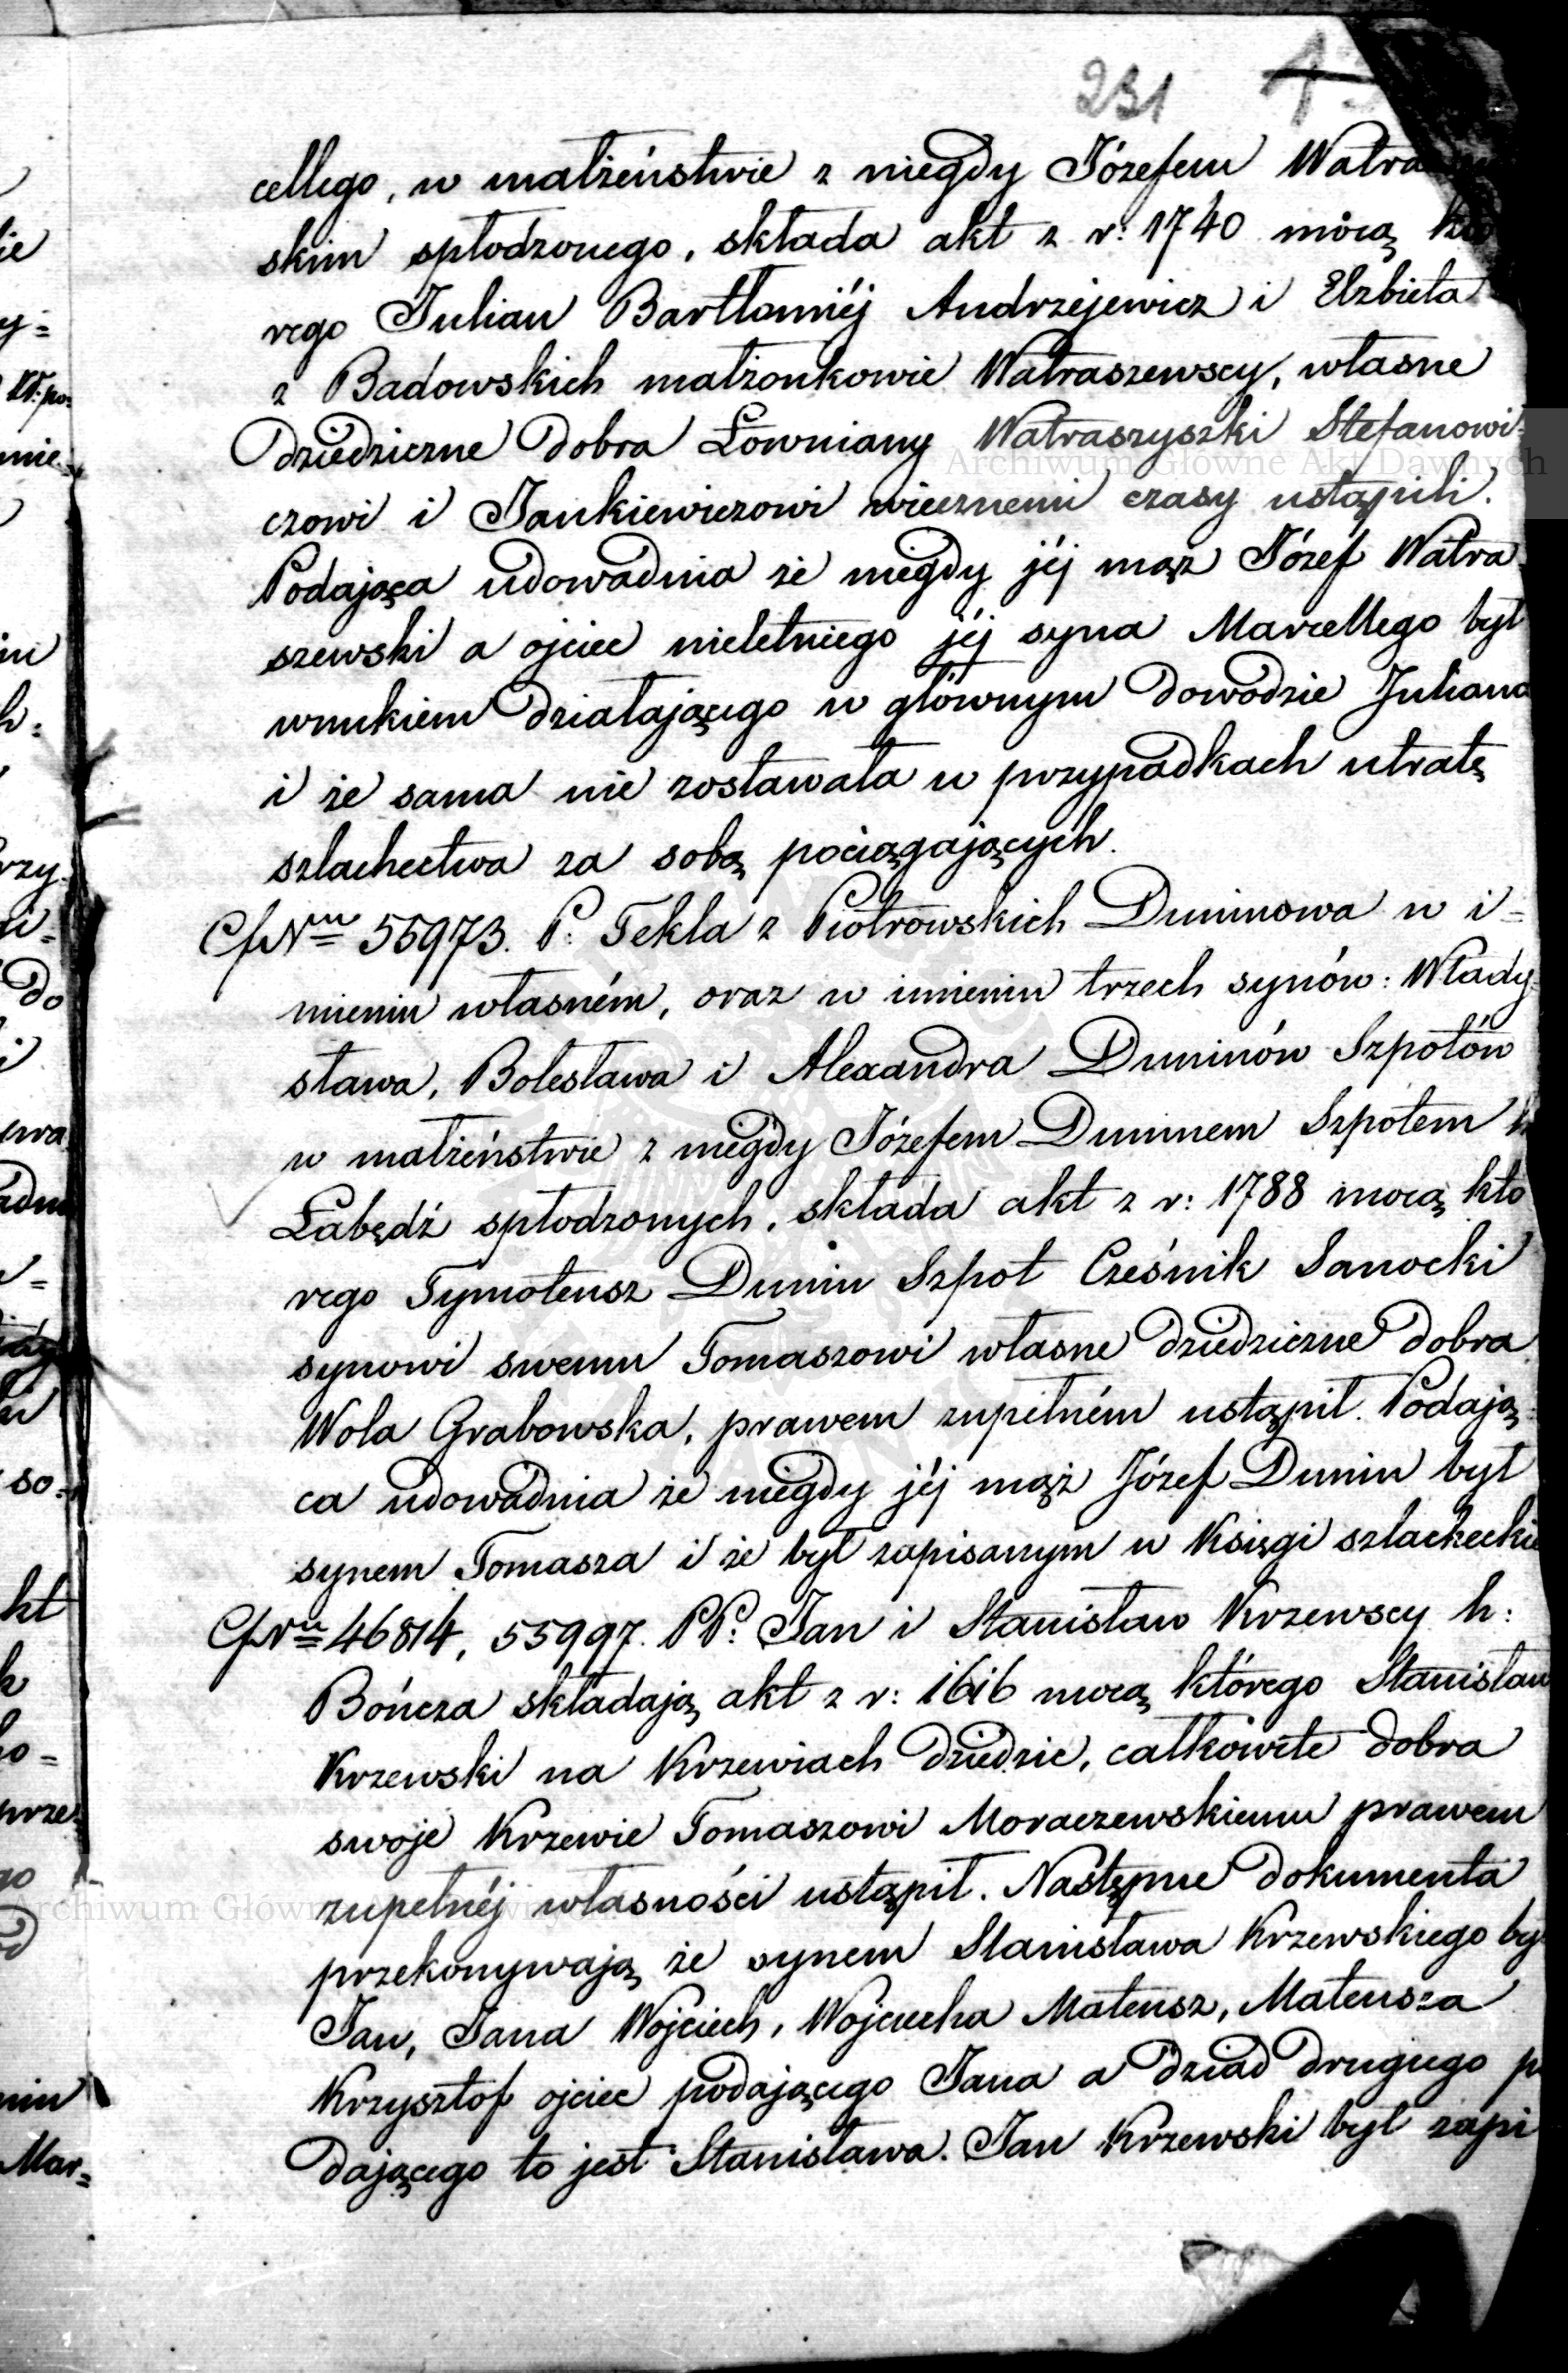 231
cellego, w małżeństwie z niegdy Józefem Watra
skim spłodzonego, składa akt z r: 1740 mocą
rego Julian Bartłomiéj Andrzejewicz i Elżbieta
z Badowskich małżonkowie Watraszewscy, własne
dziedziczne dobra Łowniany Watraszyszki Stefanowi-
czowi i Jankiewiczowi wiecznemi czasy ustąpili.
Podająca udowadnia że niegdy jéj mąż Józef Watra
szewski a ojciec nieletniego jéj syna Marcellego był
wnukiem działającego w głównym dowodzie Juliana
i że sama nie zostawała w przypadkach utratę
szlachectwa za sobą pociągających.
55973. P: Tekla z Piotrowskich Duninowa w i=
mieniu własném, oraz w imieniu trzech synów: Włady
sława, Bolesława i Alexandra Duninów Szpotów
w małżeństwie z niegdy Józefem Duninem Szpotem h
Łabędź spłodzonych, składa akt z r: 1788 mocą kto
rego Tymoteusz Dunin Szpot Cześnik Sanocki
synowi swemu Tomaszowi własne dziedziczne dobra
Wola Grabowska, prawem zupełném ustąpił. Podają=
ca udowadnia że niegdy jéj mąż Józef Dunin był
synem Tomasza i że był zapisanym w Księgi szlacheckie
46814, 55997. PP: Jan i Stanisław Krzewscy h:
Bończa składają akt z r: 1616 mocą którego Stanisław
Krzewski na Krzewiach dziedzic, całkowite dobra
swoje Krzewie Tomaszowi Moraczewskiemu prawem
zupełnéj własności ustąpił. Następne dokumenta
przekonywają że synem Stanisława Krzewskiego by
Jan, Jana Wojciech, Wojciecha Mateusz, Mateusza
Krzysztof ojciec podającego Jana a dziad drugiego p
dającego to jest Stanisława. Jan Krzewski był zapi
Archiwum Główne Akt Dawnych